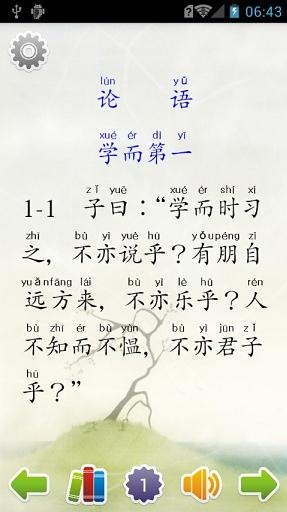 06:43
lún yǔ
论 语
xué ér dì yī
学而第一
zǐ yuē xué ér shí xí
1-1 子曰：“学而时习
zhī bù yì yuè hū yǒupéng zì
之，不亦说乎？有朋自
yuǎnfāng lái bù yì lè hū rén
远方来，不亦乐乎？人
bù zhī ér bù yùn bù yì jūn zǐ
不知而不愠，不亦君子
hū
乎？”
1